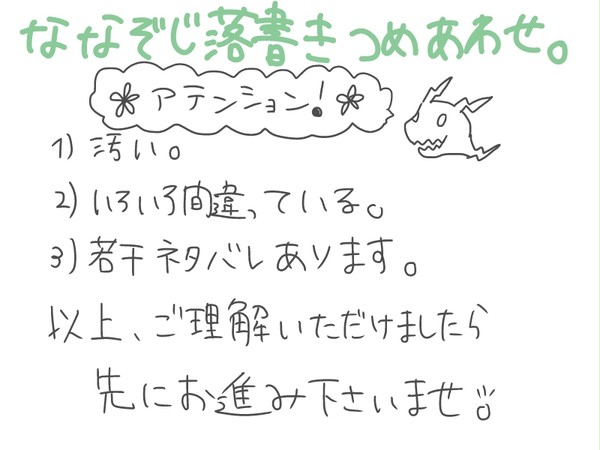 ななぞじ落書きつめあわせ。
アテンション!
1)汚い。
2)いろいろ間違っている。
3)若干ネタバレあります。
以上、ご理解いただけましたら
先にお進み下さいませ